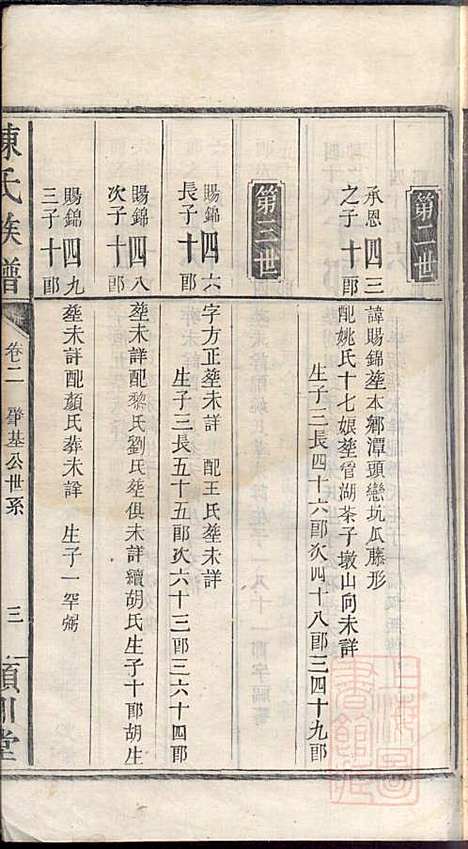 第二世
承恩四三
之子十郎
諱賜錦塟本鄉潭頭巒坑瓜藤形
配姚氏十七娘塟管湖茶子墩山向未詳
生子三長四十六郎次四十八郎三四十九郎
第三世
賜錦四六
長子十郎
字方正塟未詳 配王氏塟未詳
生子三長五十五郎次六十三郎三六十四郎
賜錦四八
次子十郎
塟未詳配黎氏劉氏塟俱未詳續胡氏生子十郎胡生
賜錦四九
三子十郎
塟未詳配顏氏葬未詳 生子一罕弼
陳氏族譜
卷二
肇基公世系
三
潁川堂